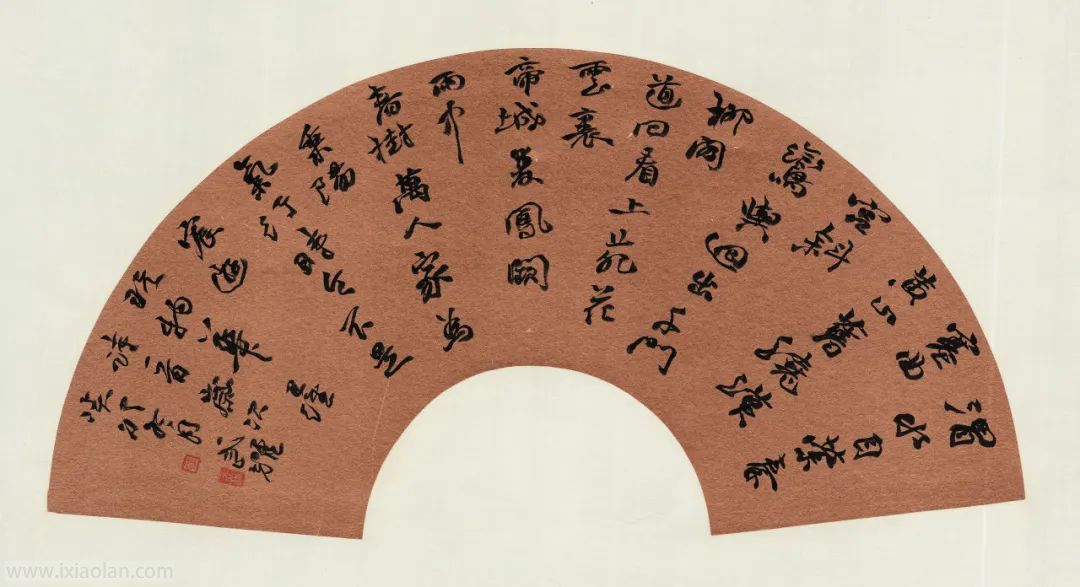 渭水自縈秦
塞曲
黃山舊繞漢
宮斜
鑾輿迥出千門
柳閣
道回看上苑花
雲裏
帝城雙鳳闕
雨中
春樹萬人家為
乘陽
氣行時令不是
宸遊
玩物華
歲次
癸卯冬月